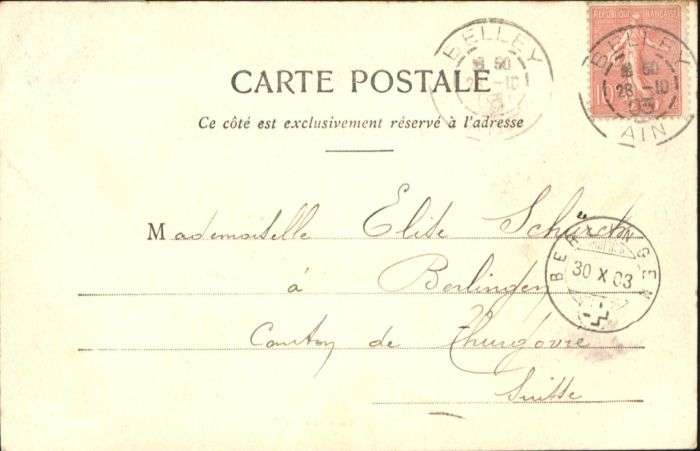 BELLEY
8 50
28 -10
03
BELLEY
8 50
28 -10
03
AIN
REPUBLIQUE FRANÇAISE
10
CARTE POSTALE
Ce côté est exclusivement réservé à l'adresse
Mademoiselle Elise Schürch
à Berlingen
Canton de Thurgovie
Suisse
BERLINGEN
30 X 03